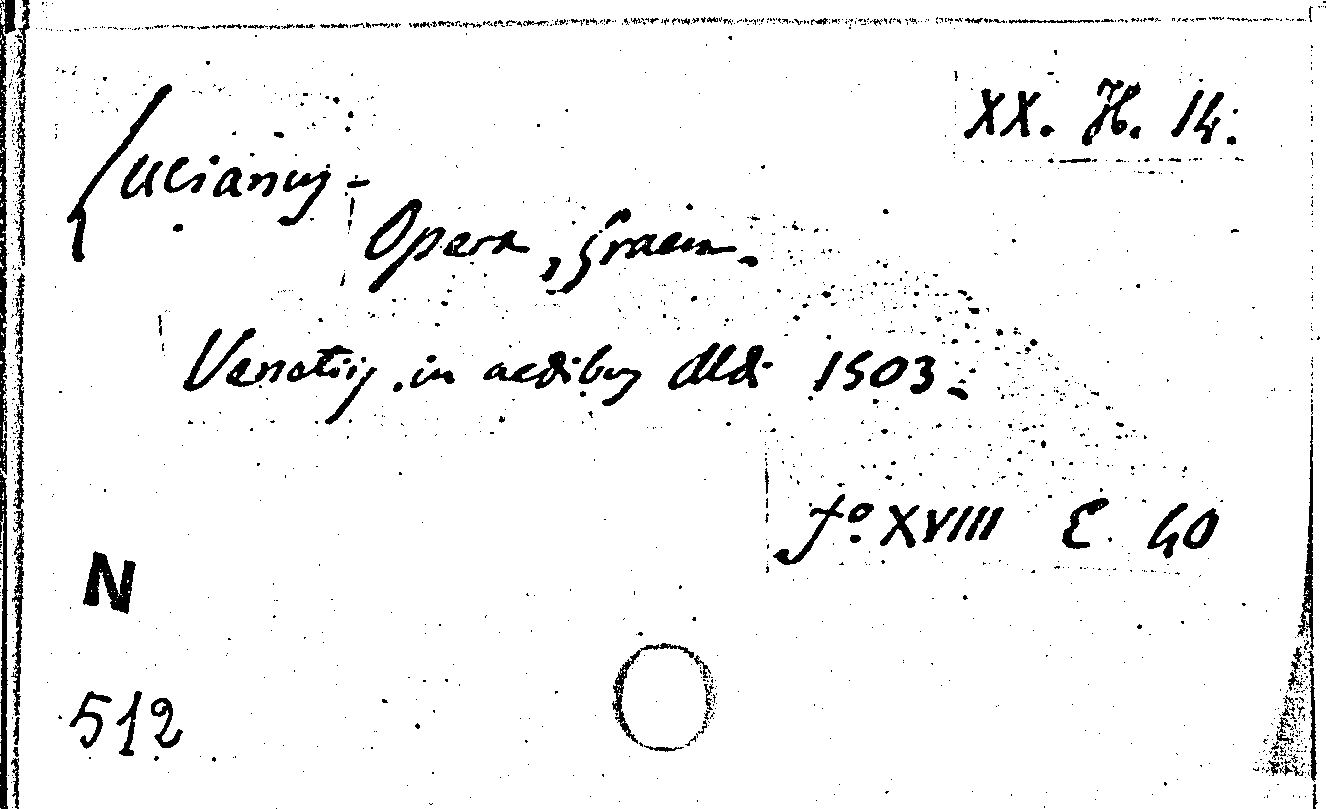 XX. H. 14.
Lucianus -
Opera, Graece.
Venetiis, in aedibus Aldi 1503.
fo. XVIII E. 40
N
512